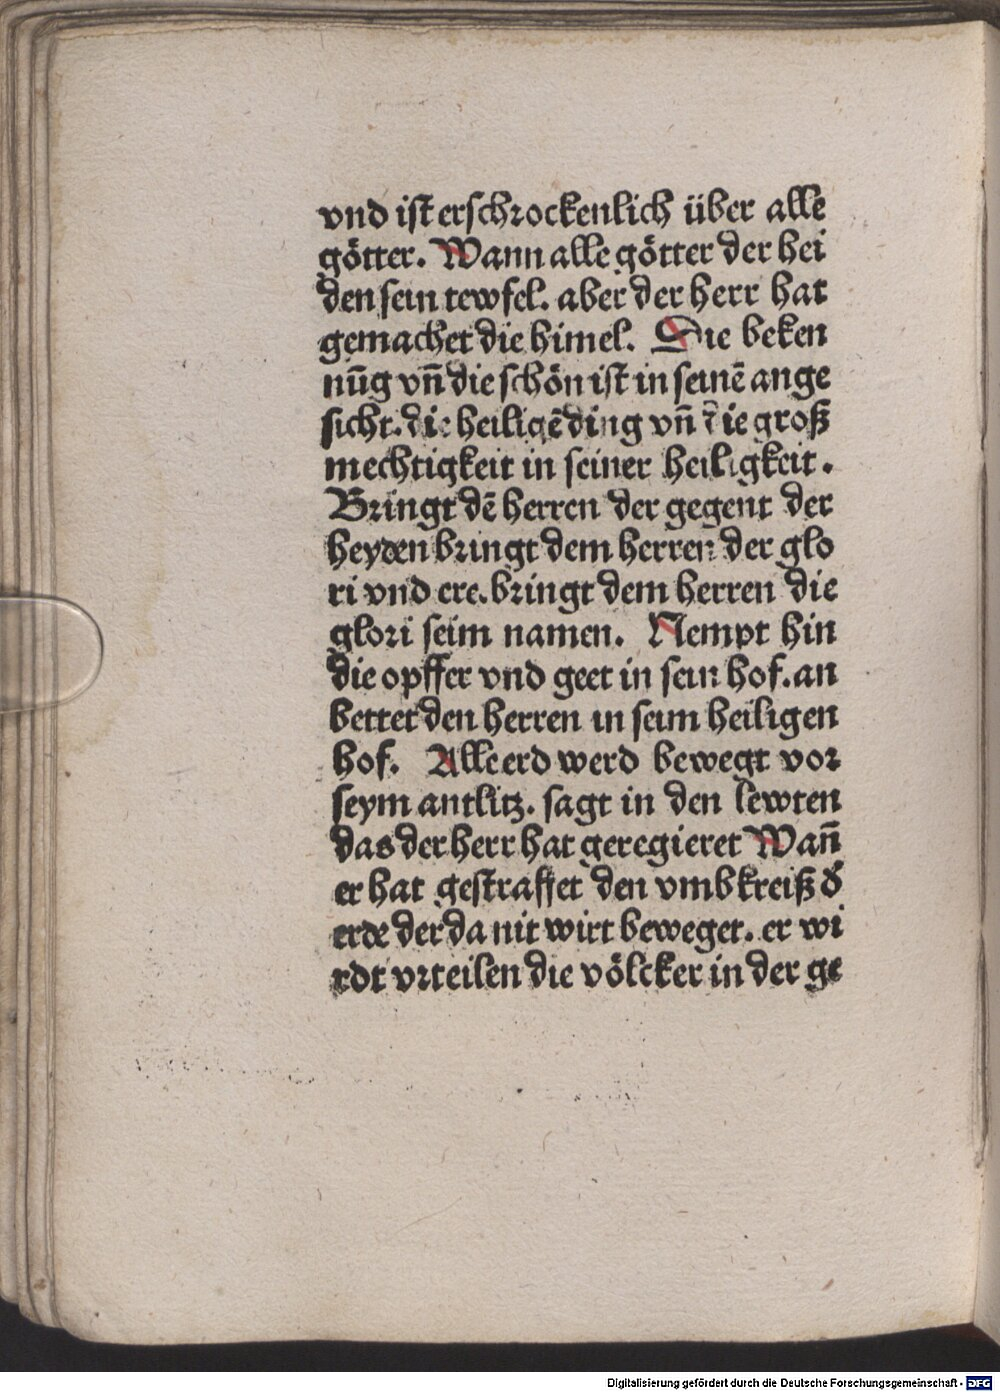 vnd ist erschrockenlich über alle
götter. Wann alle götter der hei
den sein tewfel. aber der herr hat
gemachet die himel. Die beken
nūg vn̄ die schön ist in seinē ange
sicht. die heiligē ding vn̄ die groß
mechtigkeit in seiner heiligkeit.
Bringt dē herren der gegent der
heyden bringt dem herren der glo
ri vnd ere. bringt dem herren die
glori seim namen. Nempt hin
die opffer vnd geet in sein hof. an
bettet den herren in seim heiligen
hof. Alle erd werd bewegt vor
seym antlitz. sagt in den lewten
das der herr hat geregieret Wan̄
er hat gestraffet den vmbkreiß d̾
erde der da nit wirt beweget. er wi
rdt vrteilen die völcker in der ge
Digitalisierung gefördert durch die Deutsche Forschungsgemeinschaft - DFG